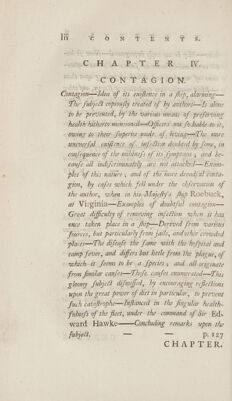 iii CONTENTS.
CHAPTER IV.
CONTAGION.
Contagion—Idea of its existence in a ship, alarming—
The subject copiously treated of by authors—Is alone
to be prevented, by the various means of preserving
health hitherto mentioned—Officers not so liable to it,
owing to their superior mode of living—The more
universal existence of infection doubted by some, in
consequence of the mildness of its symptoms, and be-
cause all indiscriminately are not attacked—Exam-
ples of this nature; and of the more dreadful conta-
gion, by cases which fell under the observation of
the author, when in his Majesty's ship Roebuck,
at Virginia—Examples of doubtful contagion—
Great difficulty of removing infection when it has
once taken place in a ship—Derived from various
sources, but particularly from jails, and other crowded
places—The disease the same with the hospital and
camp fever, and differs but little from the plague, of
which it seems to be a species, and all originate
from similar causes—Those causes enumerated—This
gloomy subject dismissed, by encouraging reflections
upon the great power of diet in particular, to prevent
such catastrophe—Instanced in the singular health-
fulness of the fleet, under the command of Sir Ed-
ward Hawke—Concluding remarks upon the
subject, — — p. 127
CHAPTER.